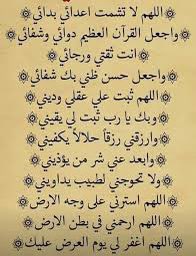 اللهم لا تشمت أعدائي بدائي
واجعل القرآن العظيم دوائي وشفائي
أنت ثقتي ورجائي
واجعل حسن ظني بك شفائي
اللهم ثبت علي عقلي وديني
وبك يا رب ثبت لي يقيني
وارزقني رزقاً حلالاً يكفيني
وابعد عني شر من يؤذيني
ولا تحوجني لطبيب يداويني
اللهم استرني على وجه الارض
اللهم ارحمني في بطن الارض
اللهم اغفر لي يوم العرض عليك